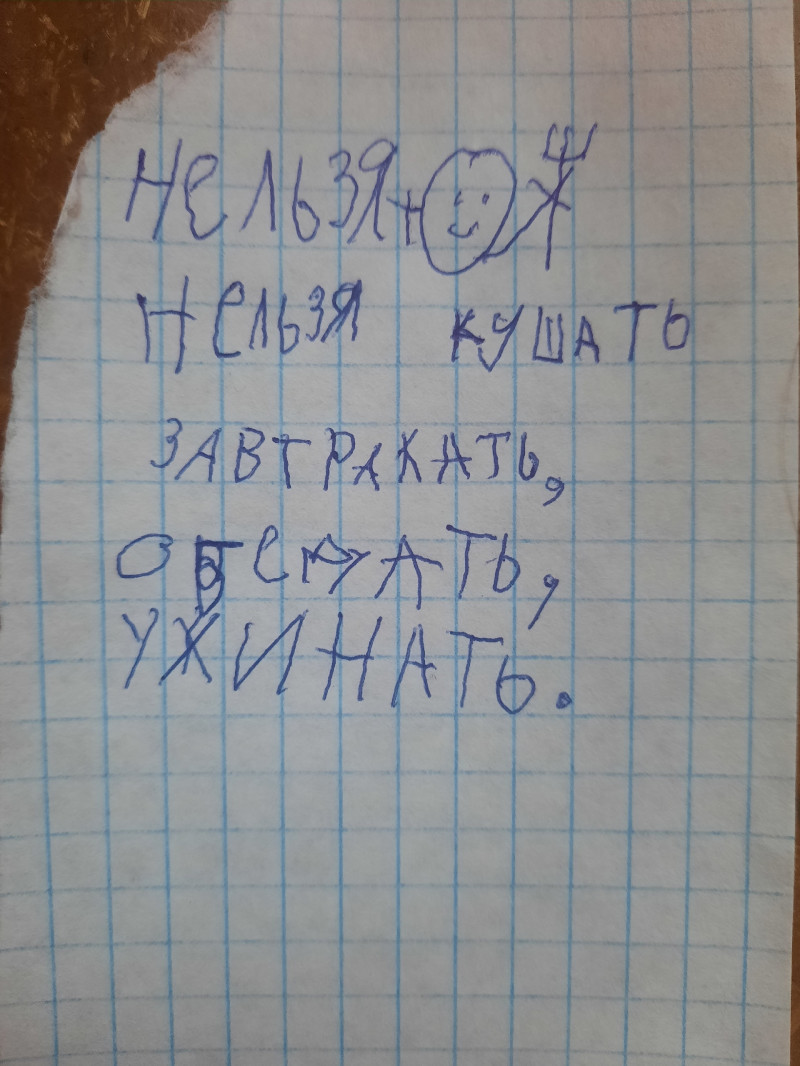 Нельзя+
Нельзя кушать
завтракать,
обедать,
ужинать.